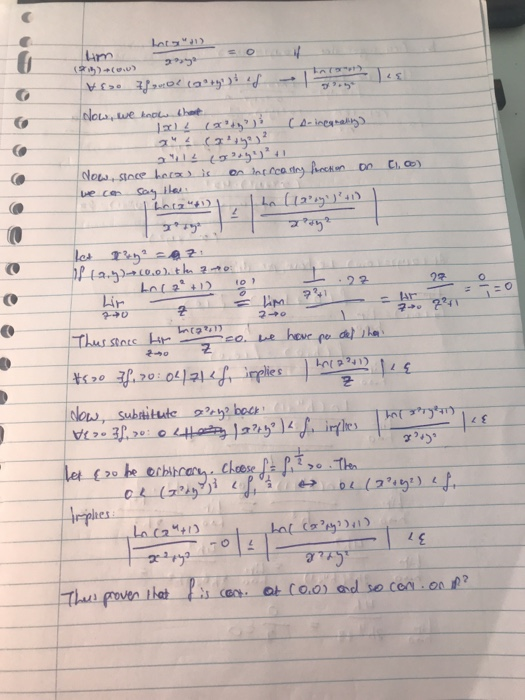 lim ln(x⁴+1) / x²+y² = 0 if
(x,y)→(0,0)
∀ε>0 ∃δ>0: 0<(x²+y²)^½ <δ → |ln(x⁴+1) / x²+y²| < ε
Now, we know that
|x| ≤ (x²+y²)^½ (Δ-inequality)
x⁴ ≤ (x²+y²)²
x⁴+1 ≤ (x²+y²)²+1
Now, since ln(x) is an increasing function on [1,∞)
we can say that:
|ln(x⁴+1) / x²+y²| ≤ |ln((x²+y²)²+1) / x²+y²|
Let x²+y² = z:
If (x,y)→(0,0), then z→0:
lim z→0 ln(z²+1) / z = "0/0" lim z→0 (1/z²+1 · 2z) / 1 = lim z→0 2z / z²+1 = 0/1 = 0
Thus since lim z→0 ln(z²+1) / z = 0, we have per def that:
∀ε>0 ∃δ₁>0: 0<|z|<δ₁ implies |ln(z²+1) / z| < ε
Now, substitute x²+y² back:
∀ε>0 ∃δ₁>0: 0< |x²+y²| < δ₁ implies |ln(x²+y²+1) / x²+y²| < ε
Let ε>0 be arbitrary. Choose δ = δ₁^½ >0. Then
0< (x²+y²)^½ < δ₁^½ ⇔ 0< (x²+y²) < δ₁
Implies:
|ln(x⁴+1) / x²+y² - 0| ≤ |ln((x²+y²)+1) / x²+y²| < ε
Thus proven that f is cont. at (0,0) and so cont. on ℝ²